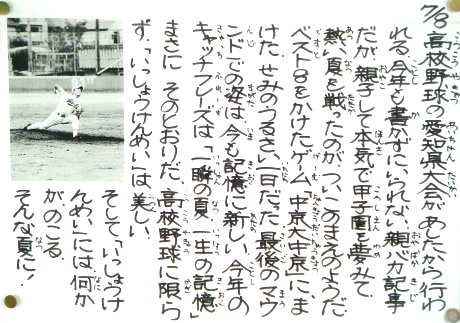 7/8 高校野球の愛知県大会があしたから行わ
れる。今年も書かずにいられない親バカ記事
だが、親子して本気で甲子園を夢みて
熱い夏を戦ったのが、ついこのまえのようだ。
ベスト8をかけたゲーム、「中京大中京」にま
けた、せみのうるさい一日だった。最後のマウ
ンドでの姿は今も記憶に新しい。今年の
キャッチフレーズは「一瞬の夏 一生の記憶」
まさに そのとおりだ。高校野球に限ら
ず、「いっしょうけんめい」は美しい。
そして「いっしょうけ
んめい」には、何か
が、のこる。
そんな夏に!